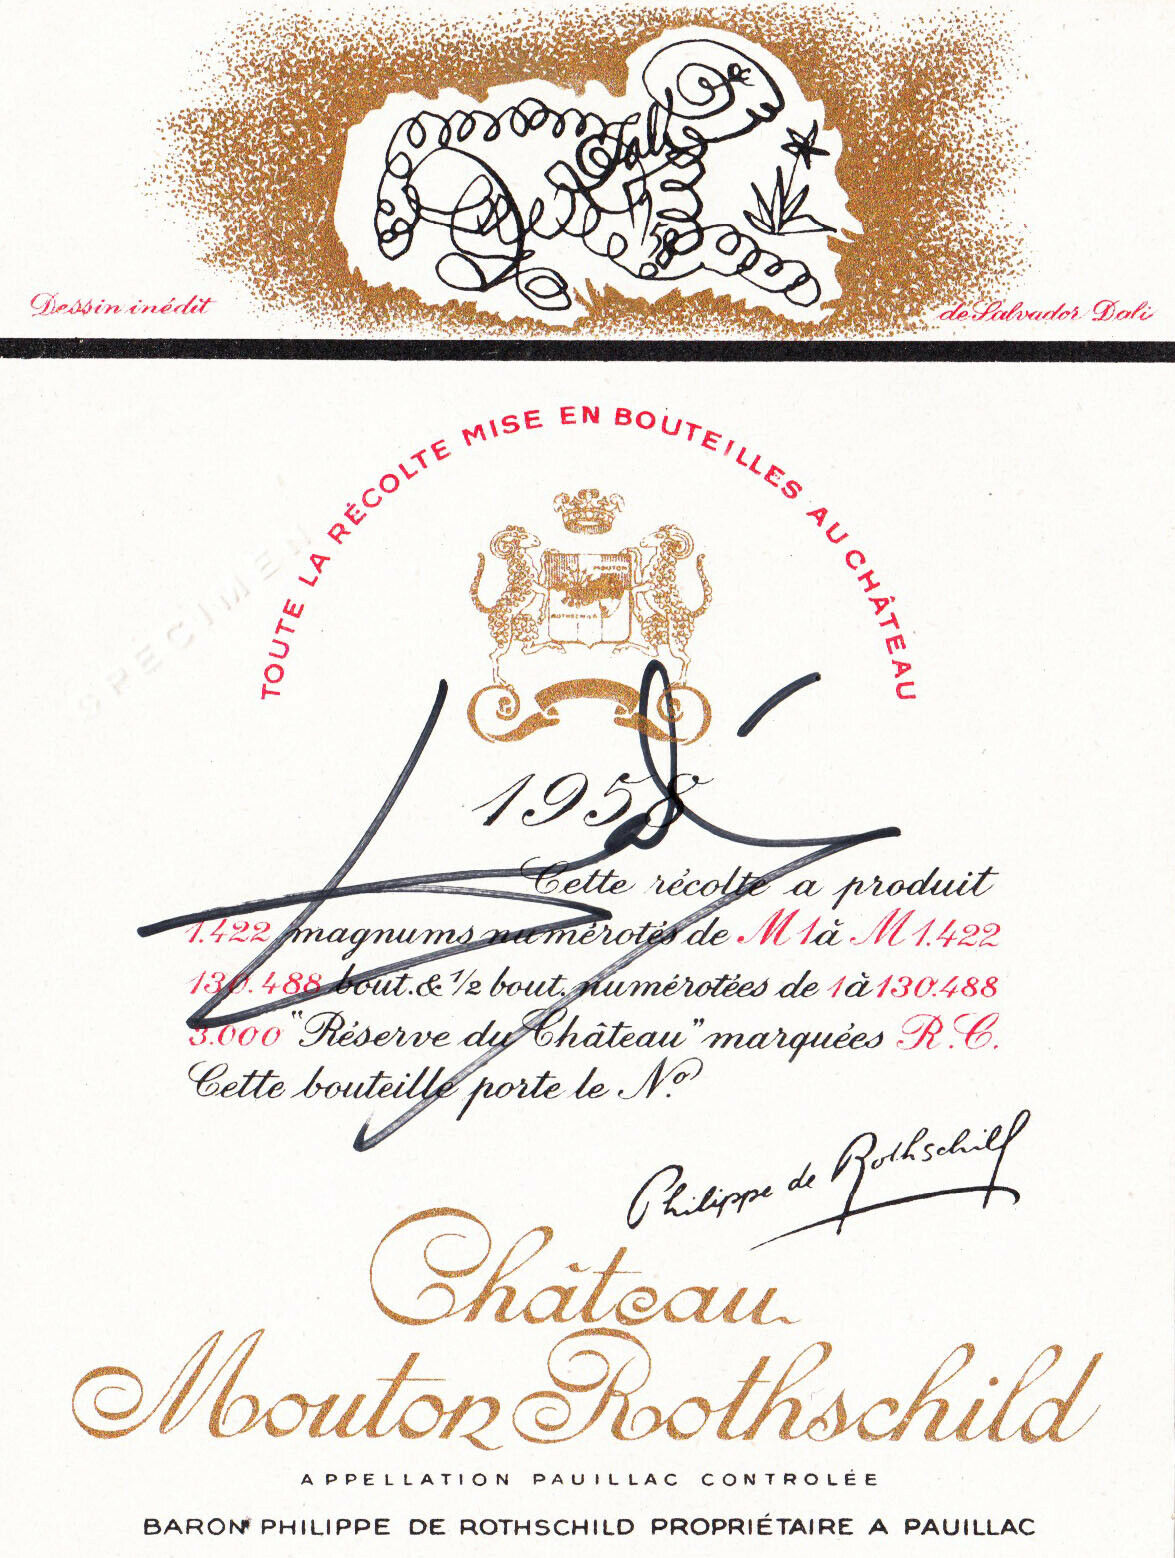 Dali
Dessin inédit
de Salvador Dali
TOUTE LA RÉCOLTE MISE EN BOUTEILLES AU CHÂTEAU
SPECIMEN
MOUTON
ROTHSCHILD
1958
Dalí
Cette récolte a produit
1.422 magnums numérotés de M1 à M1.422
130.488 bout. & 1/2 bout. numérotées de 1 à 130.488
3.000 "Réserve du Château" marquées R.C.
Cette bouteille porte le Nº
Philippe de Rothschild
Château
Mouton Rothschild
APPELLATION PAUILLAC CONTROLÉE
BARON PHILIPPE DE ROTHSCHILD PROPRIÉTAIRE A PAUILLAC